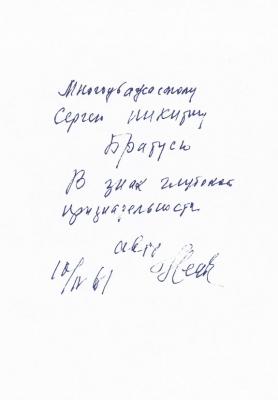 Многоуважаемому
Сергею Никитичу
Братусь
В знак глубокой
признательности
10/IV 61